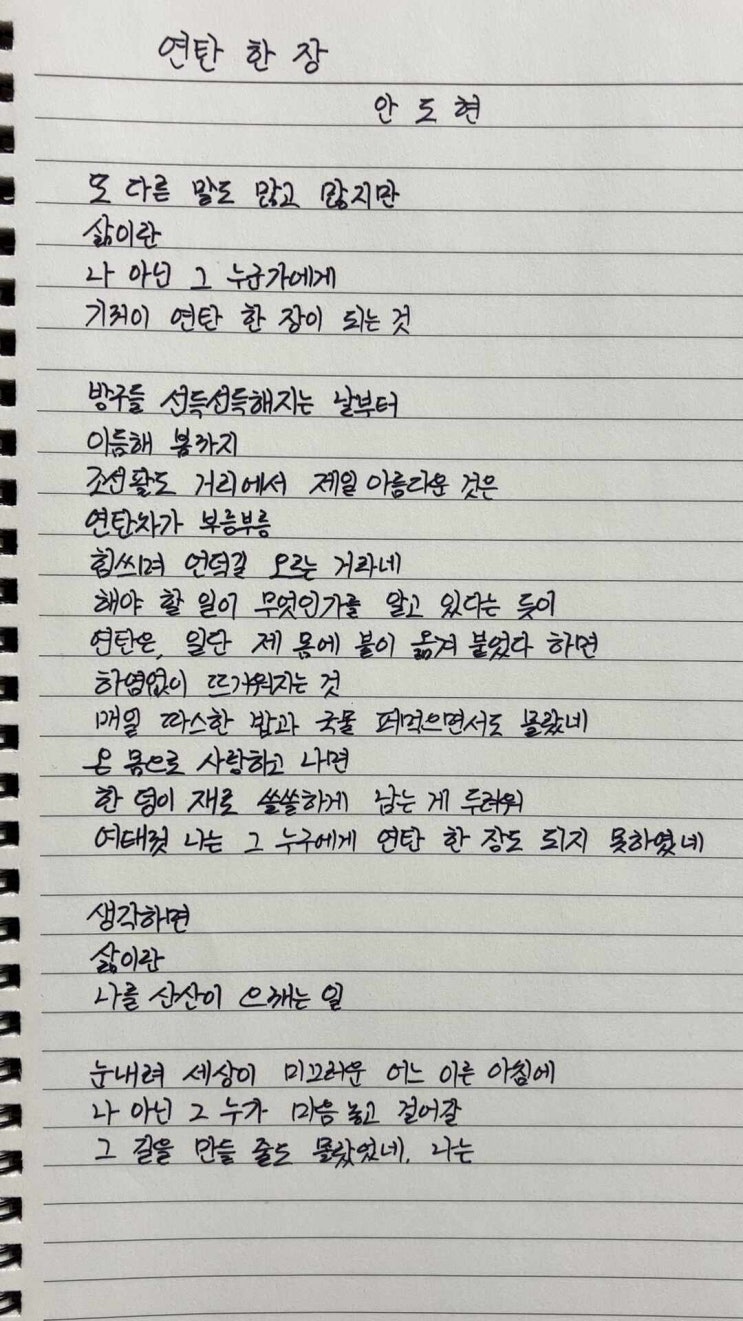 연탄 한 장
안 도 현
또 다른 말도 많고 많지만
삶이란
나 아닌 그 누군가에게
기꺼이 연탄 한 장이 되는 것
방구들 선득선득해지는 날부터
이듬해 봄까지
조선팔도 거리에서 제일 아름다운 것은
연탄차가 부릉부릉
힘쓰며 언덕길 오르는 거라네
해야 할 일이 무엇인가를 알고 있다는 듯이
연탄은, 일단 제 몸에 불이 옮겨 붙었다 하면
하염없이 뜨거워지는 것
매일 따스한 밥과 국물 퍼먹으면서도 몰랐네
온 몸으로 사랑하고 나면
한 덩이 재로 쓸쓸하게 남는 게 두려워
여태껏 나는 그 누구에게 연탄 한 장도 되지 못하였네
생각하면
삶이란
나를 산산이 으깨는 일
눈내려 세상이 미끄러운 어느 이른 아침에
나 아닌 그 누가 마음 놓고 걸어갈
그 길을 만들 줄도 몰랐었네, 나는